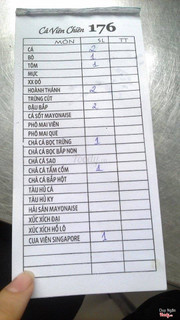 Cá Viên Chiên 176
MÓN SL TT
CÁ 2
BÒ 1
TÔM 1
MỰC
XX ĐỎ
HOÀNH THÁNH 2
TRỨNG CÚT
ĐẬU BẮP 2
CÁ SỐT MAYONAISE
PHÔ MAI VIÊN
PHÔ MAI QUE
CHẢ CÁ BỌC TRỨNG 1
CHẢ CÁ BỌC BẮP NON
CHẢ CÁ SAO
CHẢ CÁ TẨM CỐM 1
CHẢ CÁ BẮP HỘT
TÀU HŨ CÁ
TÀU HŨ KY
HẢI SẢN MAYONAISE
XÚC XÍCH ĐẠI
XÚC XÍCH HỒ LÔ
CUA VIÊN SINGAPORE 1